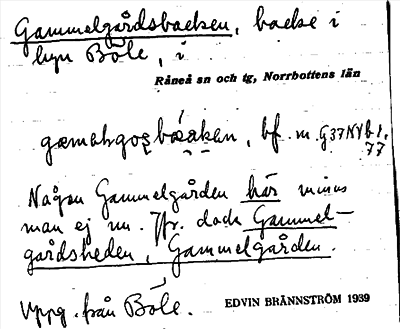 Gammelgårdsbacken, backe i
byn Böle, i
Råneå sn och tg, Norrbottens län
bf. m. G37NYb1.
77
Någon Gammelgården här minns
man ej nu. Jfr. dock Gammel-
gårdsheden, Gammelgården.
Uppg. från Böle.
EDVIN BRÄNNSTRÖM 1939